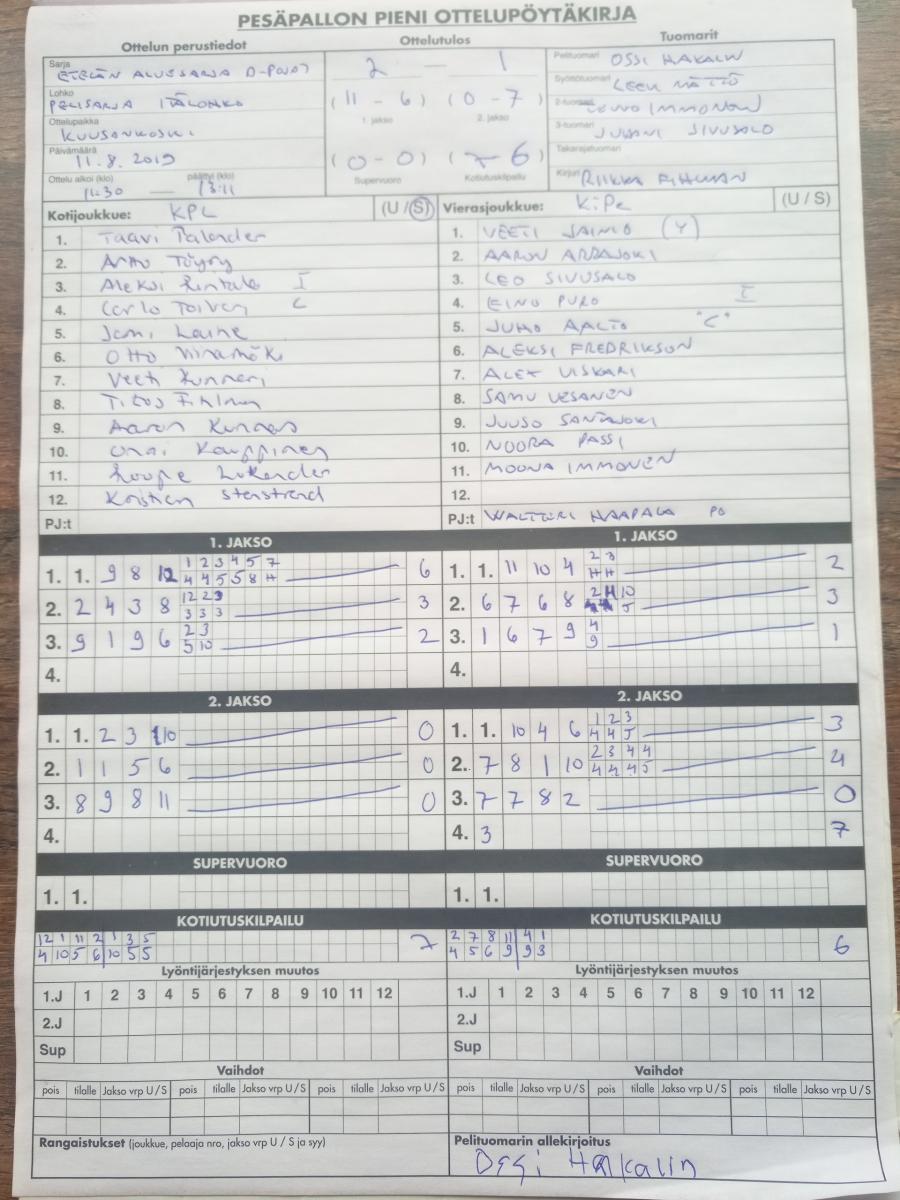 PESÄPALLON PIENI OTTELUPÖYTÄKIRJA
Ottelun perustiedot
Ottelutulos
Tuomarit
Sarja
ETELÄN ALUESARJA D-POJAT
Lohko
PELISARJA ITÄLOHKO
Ottelupaikka
KUUSANKOSKI
Päivämäärä
11.8.2019
Ottelu alkoi (klo) päättyi (klo)
11.30 — 13.11
2 — 1
(11 - 6) (0 - 7)
1. jakso 2. jakso
(0 - 0) (7 - 6)
Supervuoro Kotiutuskilpailu
Pelituomari OSSI HAKALIN
Syöttötuomari LEEVI MÄTTÖ
2-tuomari IMMONEN
3-tuomari JUHANI SIVUSALO
Takarajatuomari
Kirjuri RIIKKA FIHLMAN
Kotijoukkue: KPL (U / S)
1. Taavi Palander
2. Arttu Töyry
3. Aleksi Rintala I
4. Carlo Toivari C
5. Jami Laine
6. Otto Niinamäki
7. Veeti Kunnari
8. Titos Fihlman
9. Aaron Kunnas
10. Onni Kauppinen
11. Roope Lukander
12. Kristian Stenstrand
PJ:t
Vierasjoukkue: KiPe (U / S)
1. VEETI SAINIO (Y)
2. AARON ARRAJOKI
3. LEO SIVUSALO
4. EINO PURO I
5. JUHO AALTO "C"
6. ALEKSI FREDRIKSON
7. ALEX UISKARI
8. SAMU VESANEN
9. JUUSO SANTAJOKI
10. NOORA PASSI
11. MOONA IMMONEN
12.
PJ:t WALTTERI HAAPALA PO
1. JAKSO
1. 1. 9 8 12 1 2 3 4 5 7 6
4 4 5 5 8 H
2. 2 4 3 8 12 2 3 3
3 3 3
3. 9 1 9 6 2 3 2
5 10
4.
1. JAKSO
1. 1. 11 10 4 2 3 2
H H
2. 6 7 6 8 2 4 10 3
5
3. 1 6 7 9 4 1
9
4.
2. JAKSO
1. 1. 2 3 10 0
2. 1 1 5 6 0
3. 8 9 8 11 0
4.
2. JAKSO
1. 1. 10 4 6 1 2 3 3
4 4 5
2. 7 8 1 10 2 3 4 4 4
4 4 4 5
3. 7 7 8 2 0
4. 3 7
SUPERVUORO
1. 1.
SUPERVUORO
1. 1.
KOTIUTUSKILPAILU
12 1 11 2 1 3 5 7
4 10 5 6 10 5 5
KOTIUTUSKILPAILU
2 7 8 11 4 1 6
4 5 6 9 9 3
Lyöntijärjestyksen muutos
1.J 1 2 3 4 5 6 7 8 9 10 11 12
2.J
Sup
Lyöntijärjestyksen muutos
1.J 1 2 3 4 5 6 7 8 9 10 11 12
2.J
Sup
Vaihdot
pois tilalle Jakso vrp U / S pois tilalle Jakso vrp U / S pois tilalle Jakso vrp U / S
Vaihdot
pois tilalle Jakso vrp U / S pois tilalle Jakso vrp U / S pois tilalle Jakso vrp U / S
Rangaistukset (joukkue, pelaaja nro, jakso vrp U / S ja syy)
Pelituomarin allekirjoitus
Ossi Hakalin